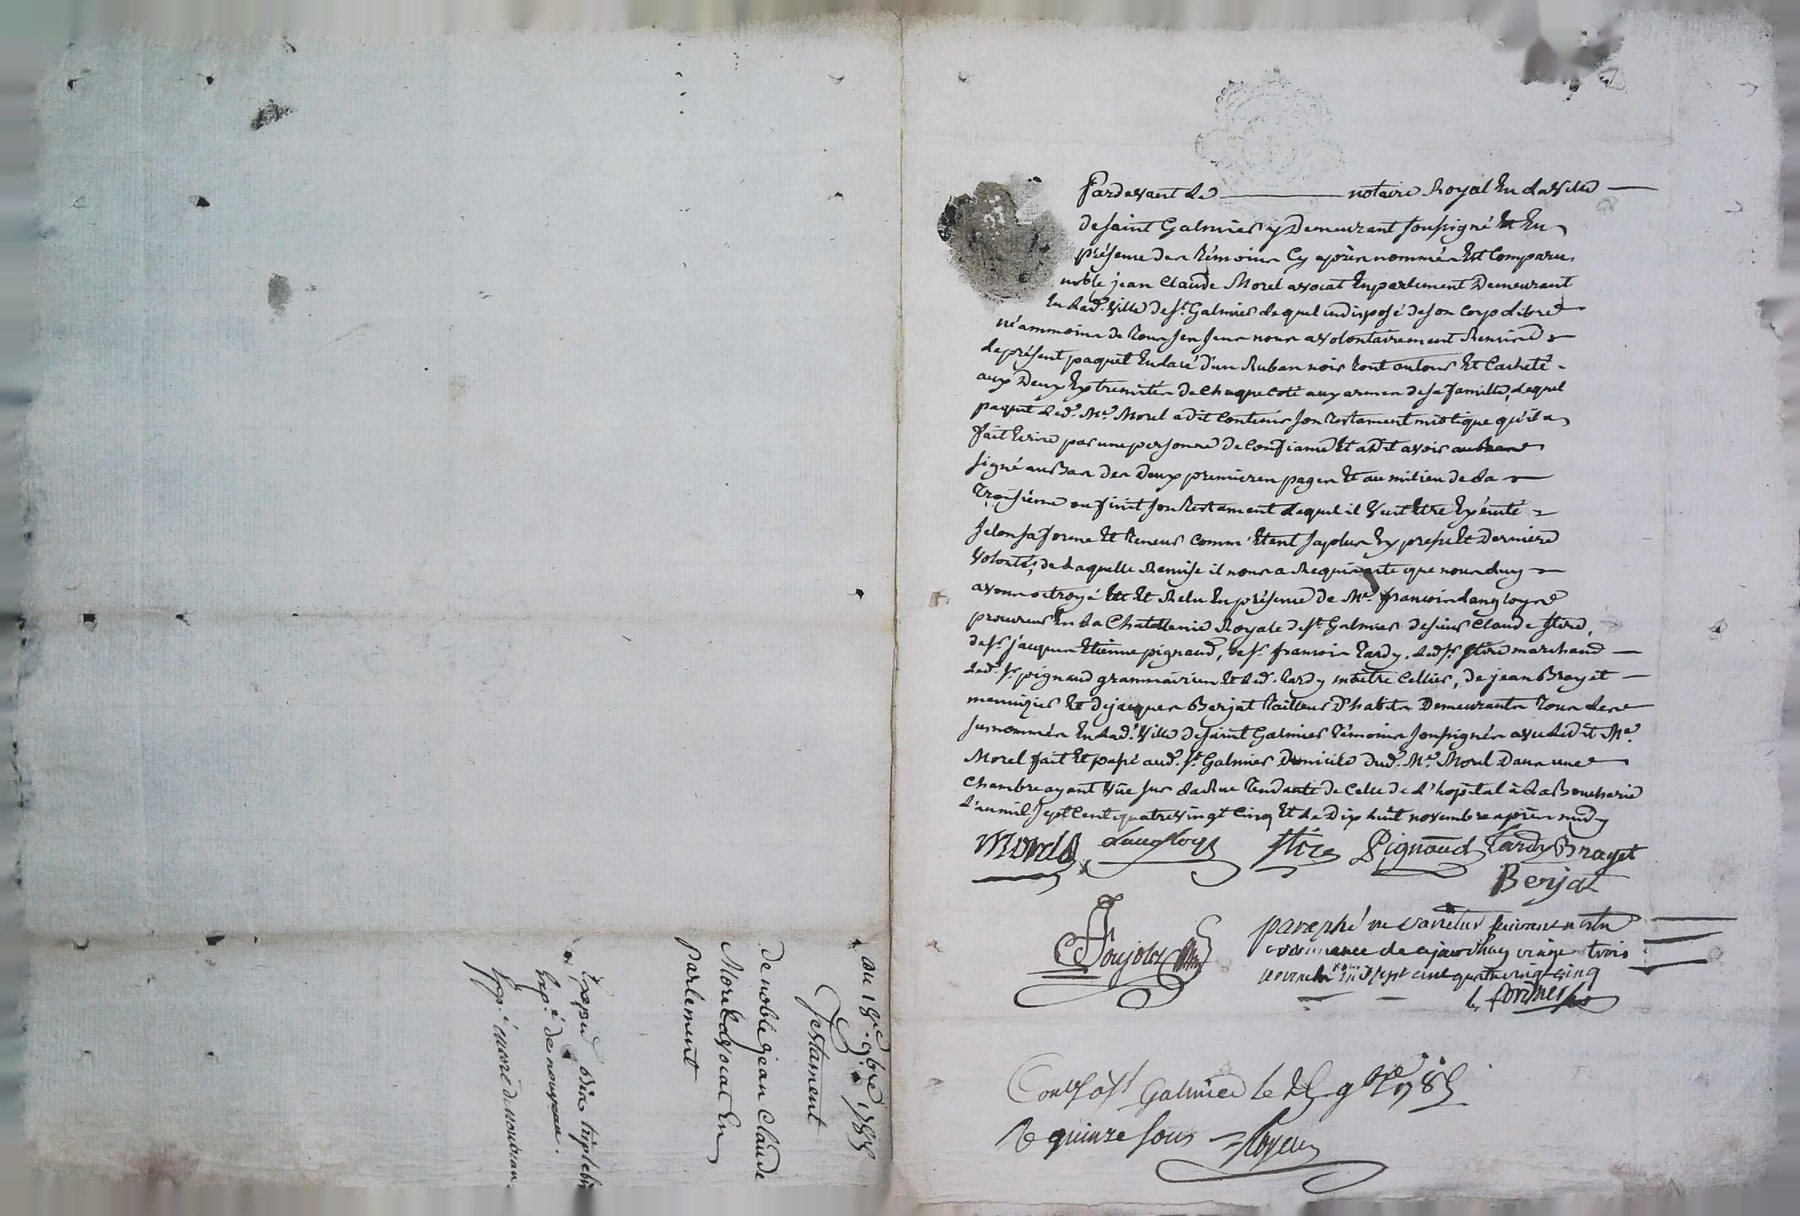 Pardevant le notaire Royal En la Ville
de saint Galmier y Demeurant soussigné Et En
présence des témoins Cy après nommés Est Comparu
noble jean Claude Morel avocat En parlement Demeurant
En lad.e Ville de St. Galmier lequel indisposé de son Corp libre
néammoins de tous ses sens nous a volontairement Remis
le présent paquet Enlacé d'un Ruban noir tout autour Et Cacheté
aux Deux Extremités de Chaque coté aux armes de sa famille, lequel
paquet led. Me. Morel a dit Contenir son testament mistique qu'il a
fait Ecrire par une personne de Confiance Et a dit avoir
signé au Bas des Deux premieres pages Et au milieu de la
troisieme ou finit son testament lequel il Veut Etre Exécuté
selon sa forme Et teneur Comm' Etant sa plus Expresse Et Derniere
Volonté; de laquelle Remise il nous a Requis acte que nous luy
avons octroyé Et Relu En présence de Me. françois Langloys
procureur En la Chatellenie Royale de St. Galmier de sieur Claude
de sr. jacques Etienne pignaud, de sr. françois tardy, led. sr. marchand
led. sr. pignaud grammairien Et led. tardy maitre Cellier, de jean Brayet
menuizier Et de jacques Berjat tailleur D'habits Demeurants tous les
susnommés En lad.e Ville de saint Galmier témoins soussignés avec ledit Me.
Morel fait Et passé aud. St. Galmier Domicile dud. Me. Morel Dans une
Chambre ayant Vüe sur la Rue tendante de Celle de l'hopital à la Boucherie
L'an mil sept Cent quatrevingt Cinq Et le Dix huit novembre après midy
Morel Langloys Pignaud Tardy Brayet
Berjat
paraphé ne varietur suivant notre
ordonnance de ajourdhuy vingt trois
novembre mil sept cent quatre vingt cinq
Con.lé à St Galmier le 9bre 1785
R quinze sous
du 18.e 9bre 1785
Testament
de noble jean Claude
Morel avocat En
parlement
Exp.é de nouveau.
Exp.é encore de nouveau